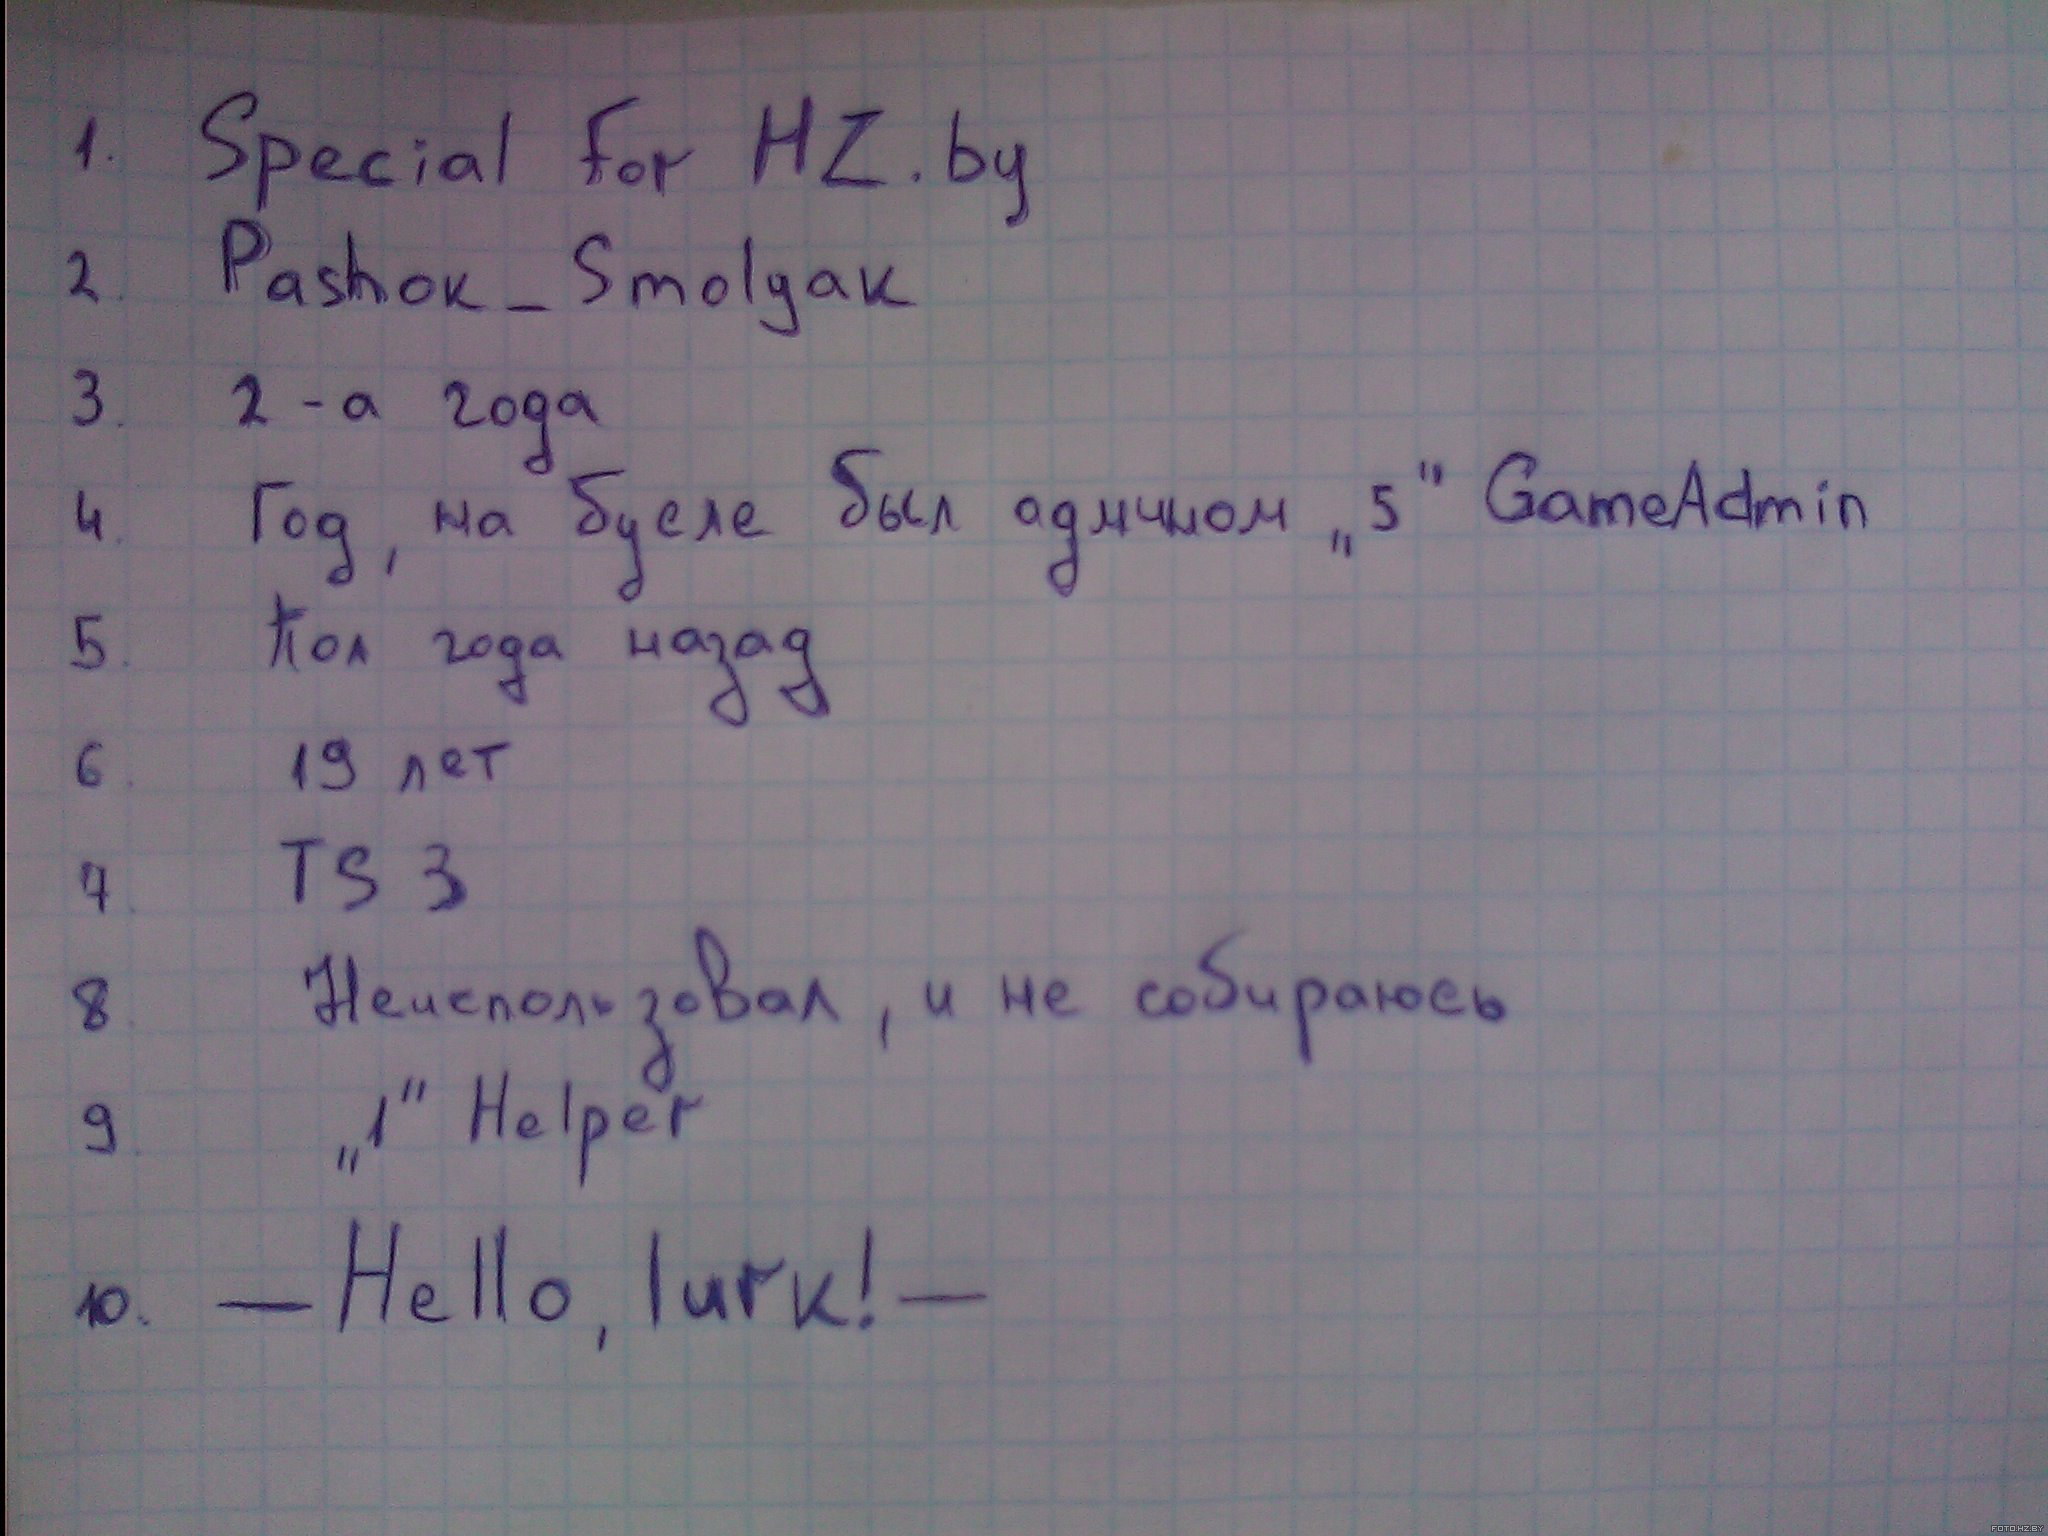 1. Special for HZ.by
2. Pashok_Smolyak
3. 2-а года
4. Год, на бусле был админом „5" GameAdmin
5. Пол года назад
6. 19 лет
7. TS 3
8. Неиспользовал, и не собираюсь
9. „1" Helper
10. — Hello, lurk! —
FOTO.HZ.BY